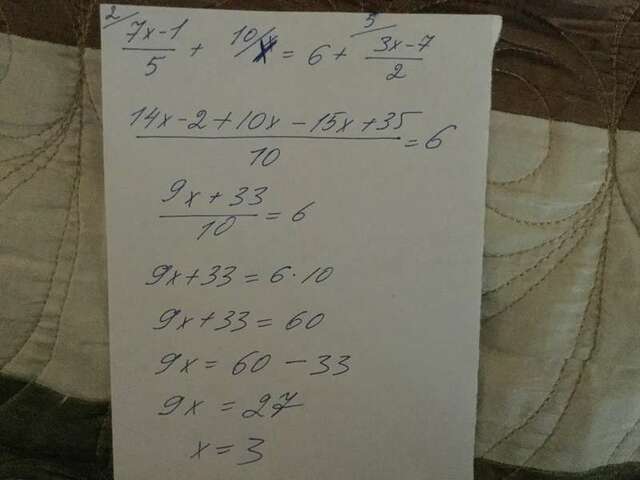 2/ 7x-1/5 + 10/ x = 6 + 5/ 3x-7/2
14x-2+10x-15x+35/10 = 6
9x+33/10 = 6
9x+33 = 6·10
9x+33 = 60
9x = 60 - 33
9x = 27
x = 3